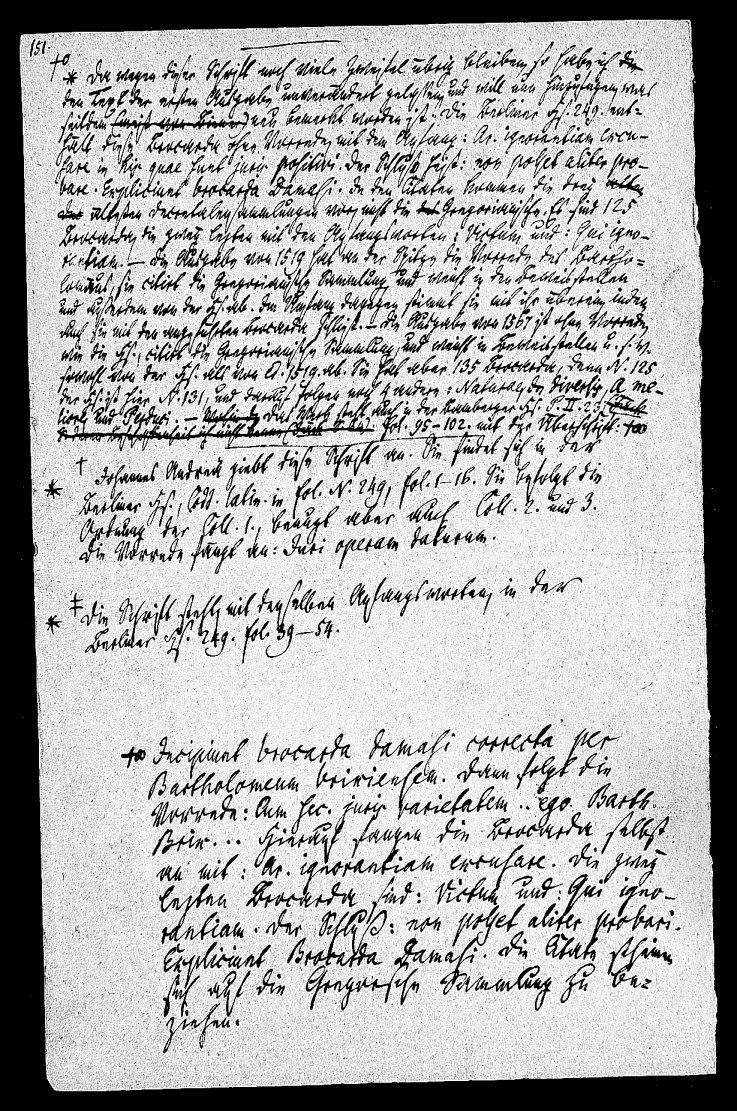 151.
†o
* Da wegen dieser Schrift noch viele Zweifel übrig bleiben, so habe ich die
den Text der ersten Ausgabe unverändert gelassen, und will nun hinzufügen, was
seitdem neu bemerkt worden ist. Die Berliner Hs. 249. ent-
hält diese Brocarda ohne Vorrede, mit dem Anfang: Ar. ignorantiam excu-
sare in his quae sunt juris positivi. Der Schluß heißt: non posset aliter pro-
bare. Expliciunt brocarda Damasi. In den Citaten kommen die drey alten
der ältesten Decretalensammlungen vor, nicht die Gregorianische. Es sind 125
Brocarda, die zwey letzten mit den Anfangsworten: Victum, und: Qui igno-
rantiam. — Die Ausgabe von 1519 hat an der Spitze die Vorrede des Bartho-
lomäus, sie citirt die Gregorianische Sammlung, und weicht in den Beweisstellen
und außerdem von der Hs. ab. Im Umfang dagegen stimmt sie mit ihr überein, indem
auch sie mit den angeführten Brocarda schließt. — Die Ausgabe von 1567 ist ohne Vorrede,
wie die Hs., citirt die Gregorianische Sammlung, und weicht in Beweisstellen u. s. w.
sowohl von der Hs. als von A. 1519. ab. Sie hat aber 135 Brocarda, denn N. 125
der Hs. ist hier N. 131, und darauf folgen noch 4 andere: Natura, De diversis, A me-
liori und — Das Werk steht auch in der Bamberger Hs. P. II. 23.
fol. 95–102. mit der Überschrift: †oo
† Johannes Andreä giebt diese Schrift an. Sie findet sich in der
* Berliner Hs., Codd. latin. in fol. N. 249, fol. 1–16. Sie befolgt die
Ordnung der Coll. 1., benutzt aber auch Coll. 2. und 3.
Die Vorrede fängt an: Juri operam daturum.
‡ Die Schrift steht, mit denselben Anfangsworten, in der
* Berliner Hs. 249. fol. 39–54.
†oo Incipiunt brocarda damasi correcta per
Bartholomeum brixiensem. Dann folgt die
Vorrede: Cum hec. juris varietatem .. ego. Barth.
Brix... Hierauf fangen die Brocarda selbst
an mit: Ar. ignorantiam excusare. Die zwey
letzten Brocarda sind: Victum, und: Qui igno-
rantiam. Der Schluß: non posset aliter probari.
Expliciunt Brocarda Damasi. Die Citate scheinen
sich auf die Gregorsche Sammlung zu be-
ziehen.